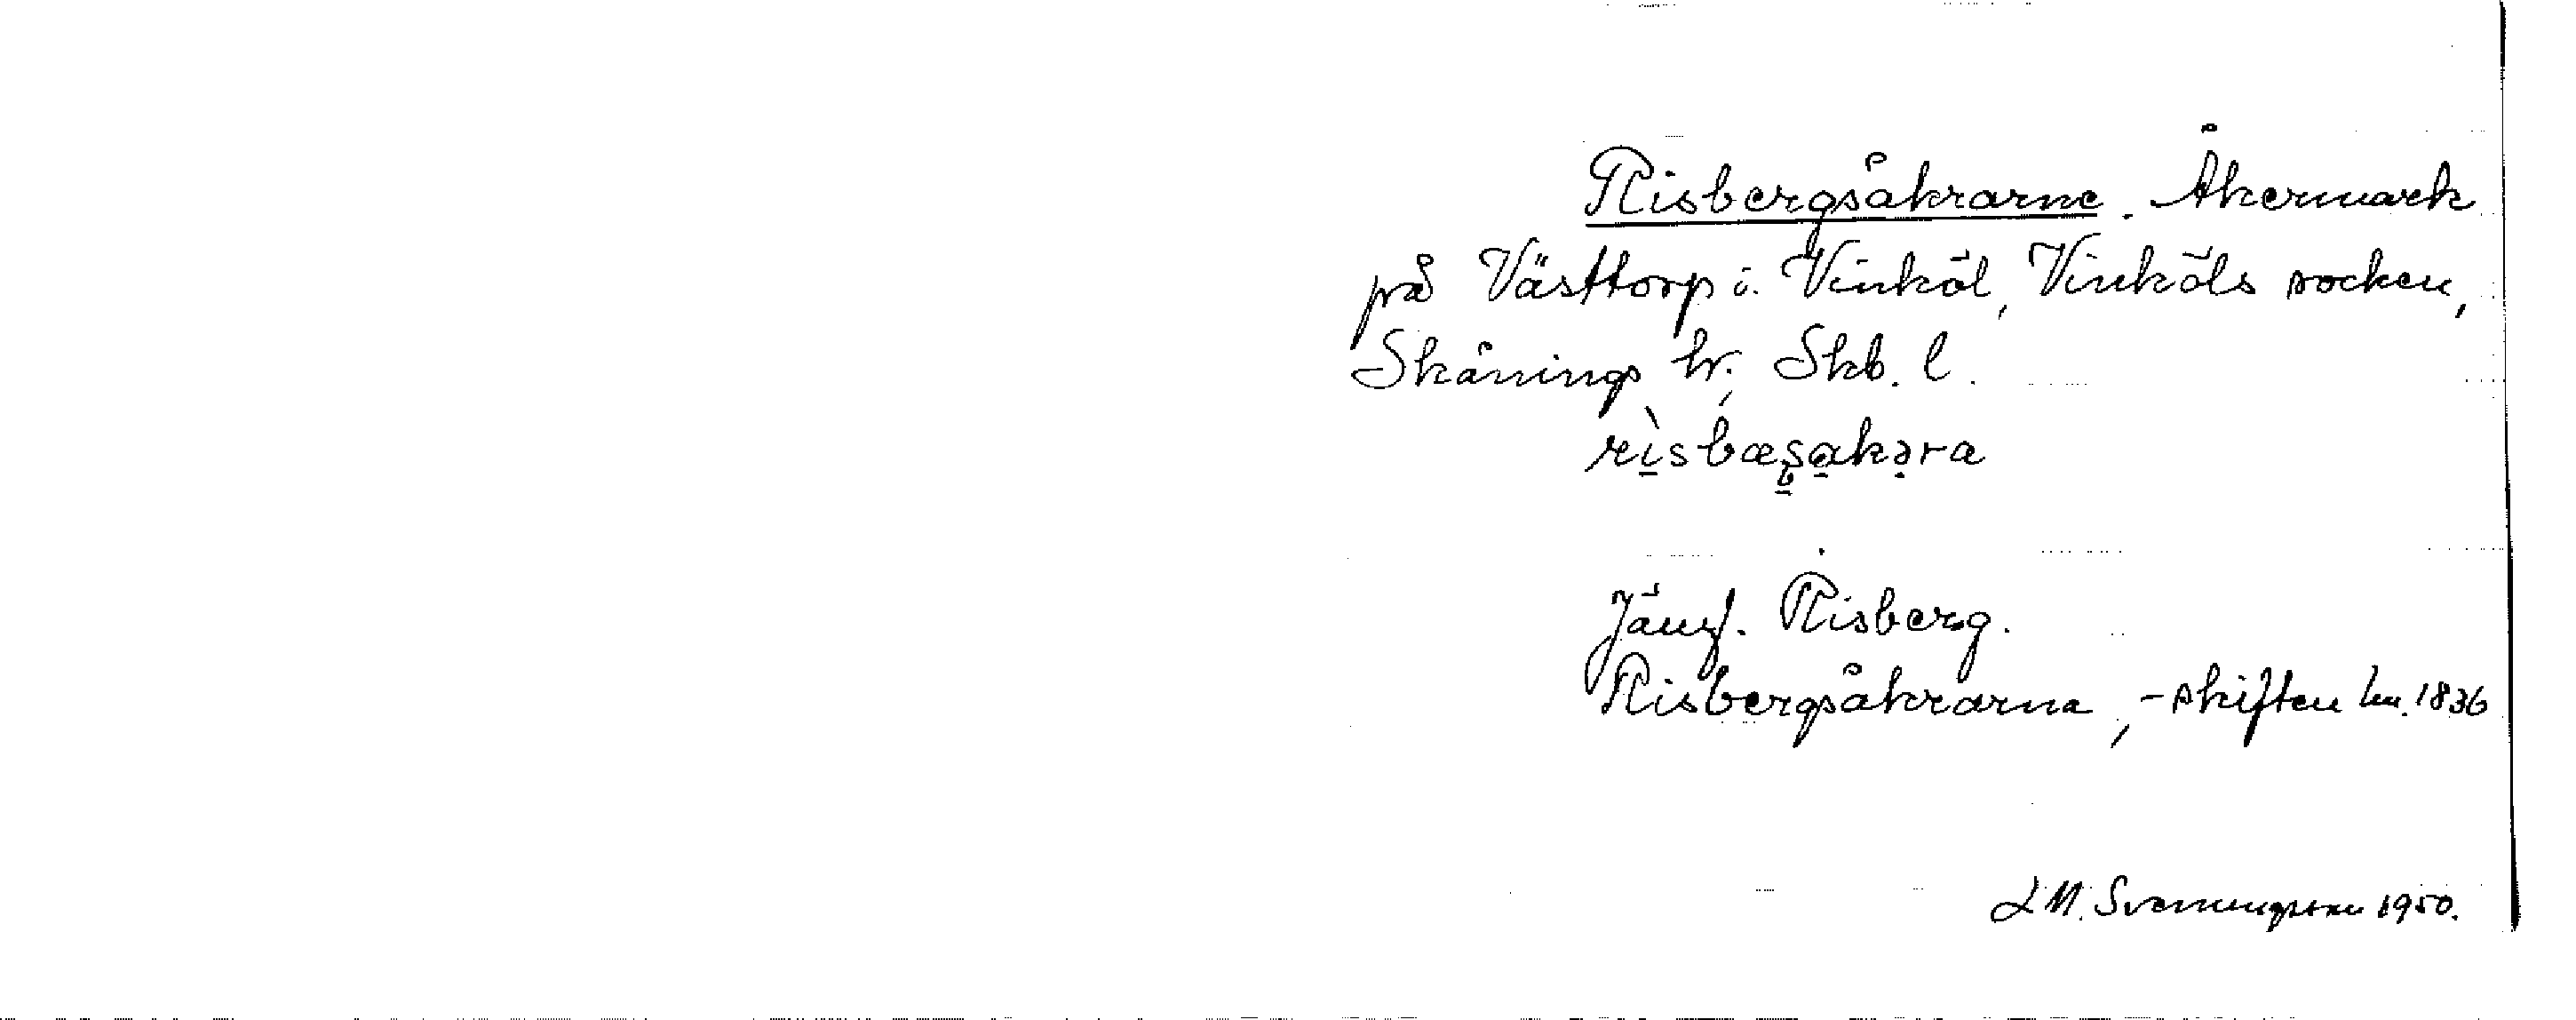 Risbergsåkrarne. Åkermark
på Västtorp i Vinköl, Vinköls socken,
Skånings hr, Skb. l.
rìsbæsakəra
Jämf. Risberg.
Risbergsåkrarna, -skiften lm. 1836
L M. Svenungsson 1950.